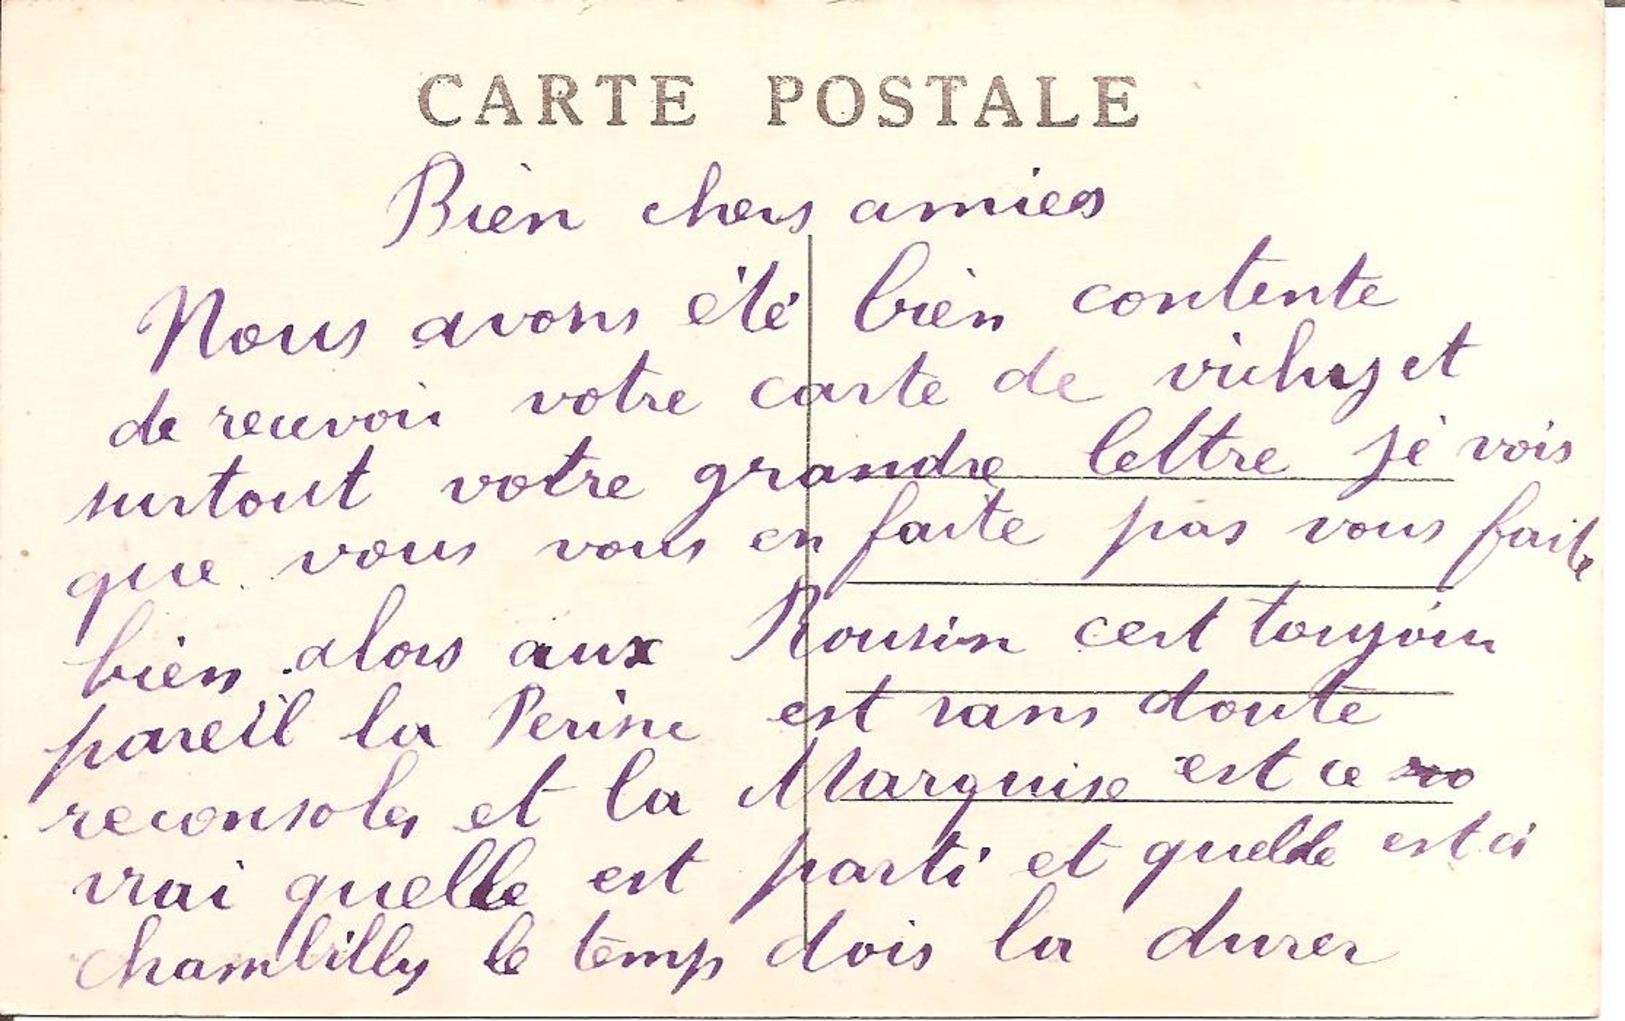 CARTE POSTALE
Bien chers amies
Nous avons été bien contente
de recevoir votre carte de vichy et
surtout votre grande lettre je vois
que vous vous en faite pas vous faite
bien alors aux Rousin cest toujour
pareil la Perine est sans doute
reconsoler et la Marquise est ce
vrai quelle est parti et quelle est a
chambilly le temp dois la durer